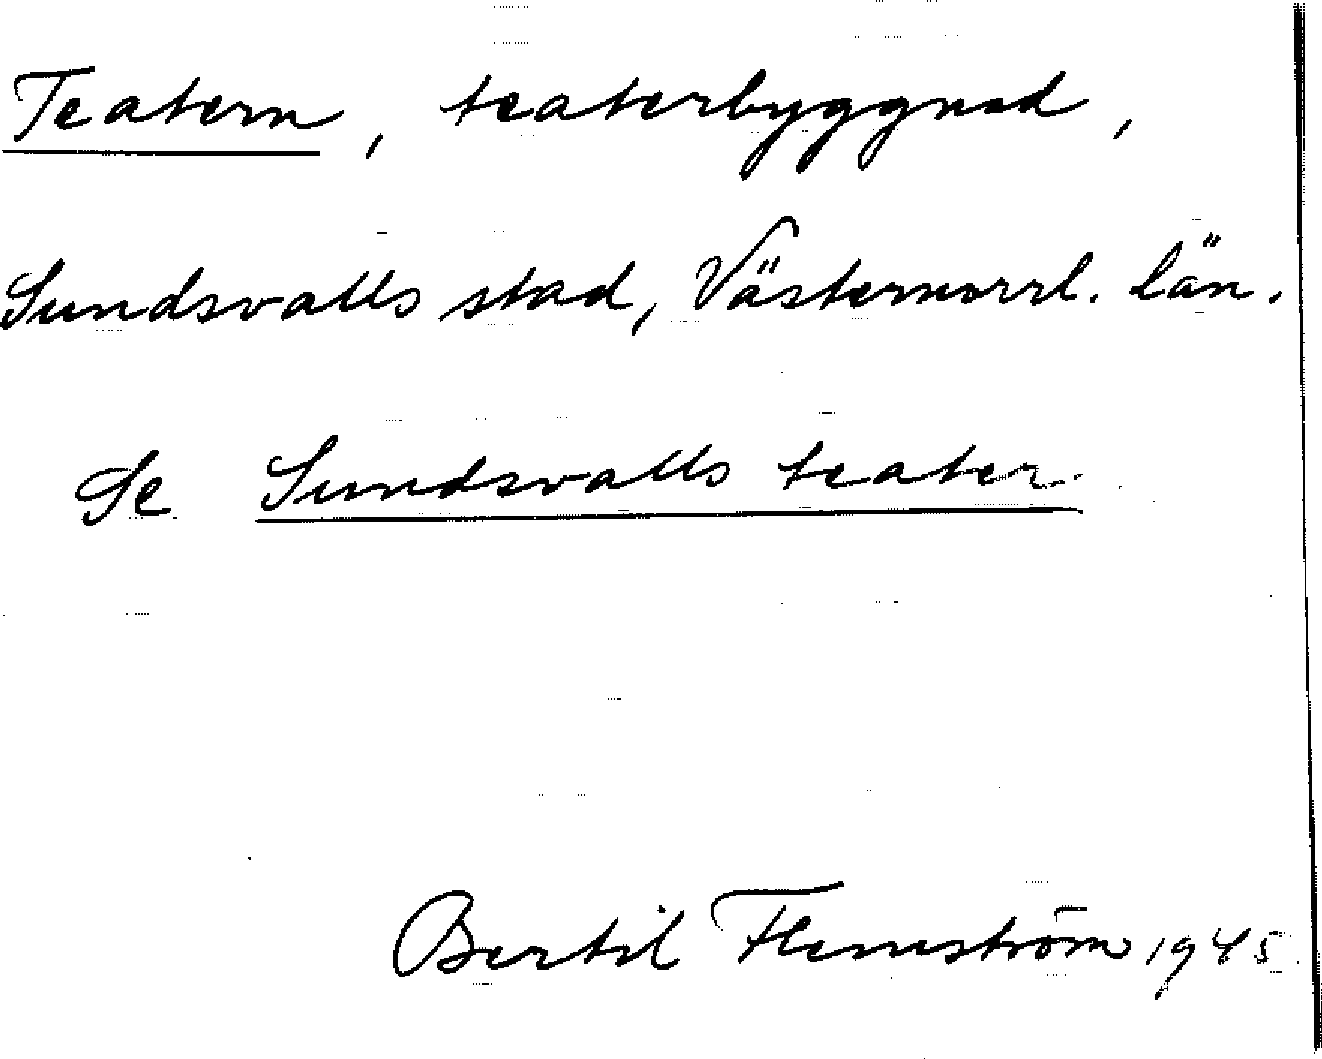 Teatern, teaterbyggnad,
Sundsvalls stad, Västernorrl. län.
Se Sundsvalls teater.
Bertil Flemström 1945